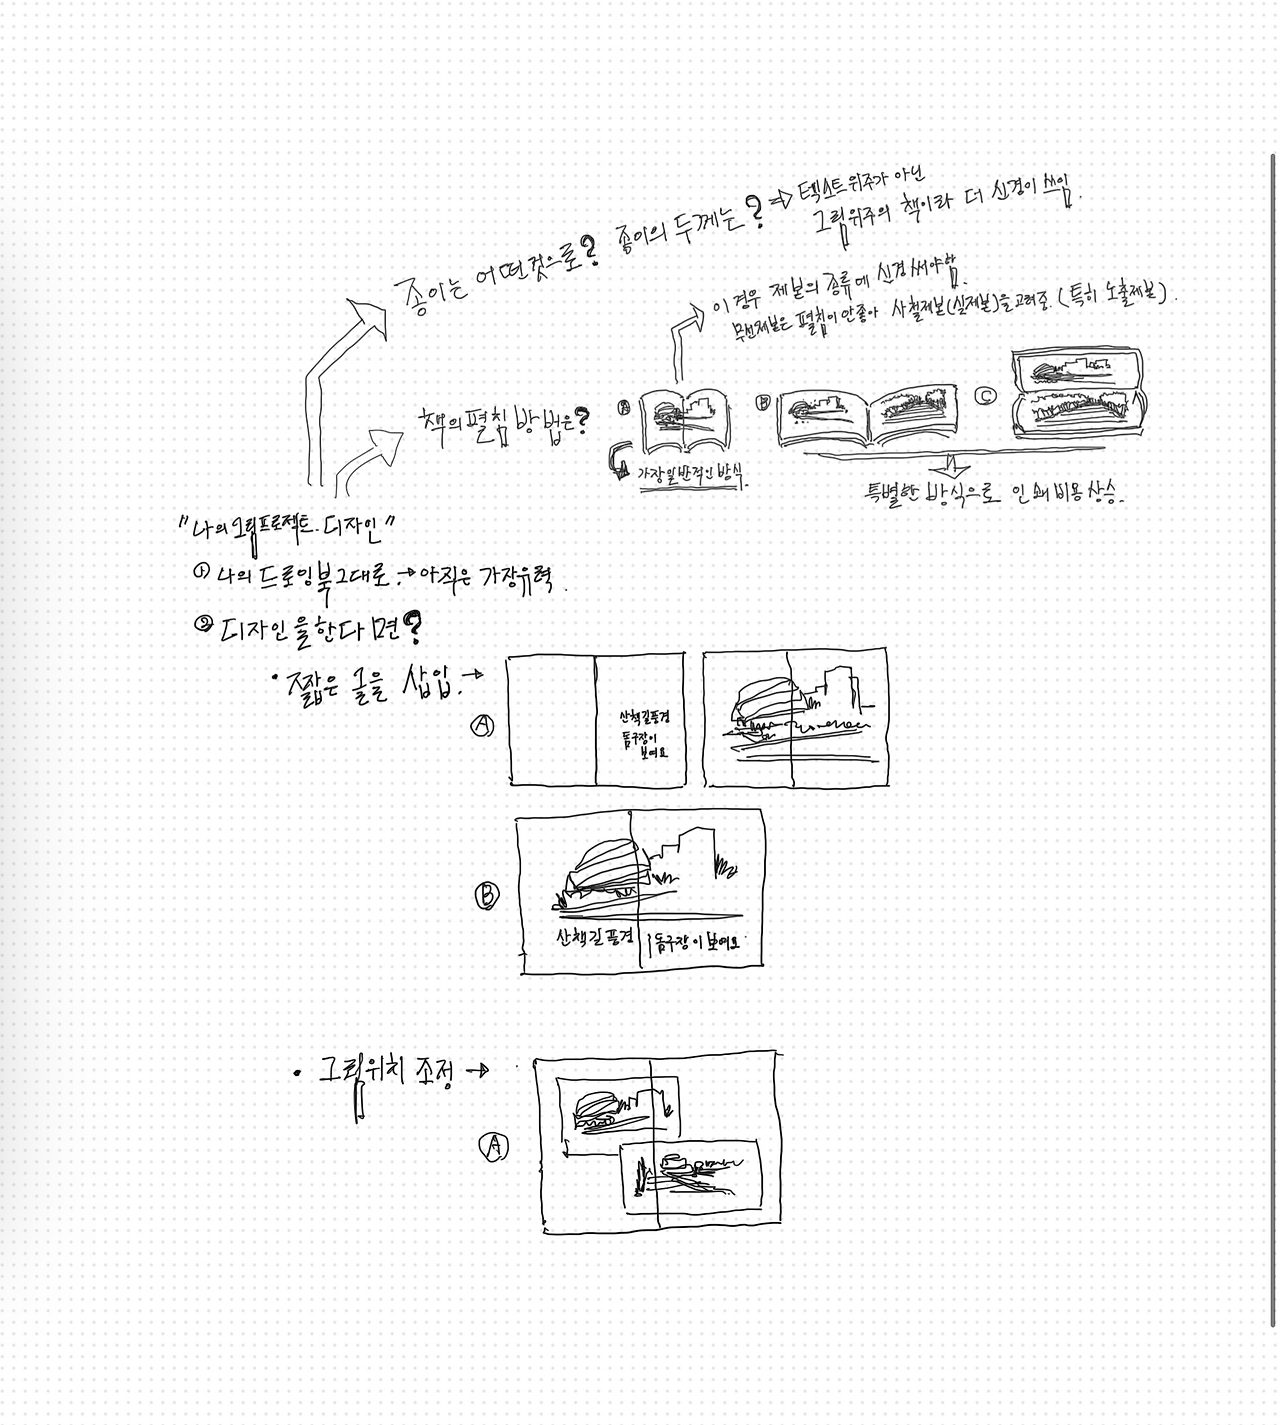 종이는 어떤것으로? 종이의 두께는? ⇒ 텍스트위주가 아닌
그림위주의 책이라 더 신경이 쓰임.
이 경우 제본의 종류에 신경써야함.
무선제본은 펼침이 안좋아 사철제본(실제본)을 고려중. (특히 노출제본).
책의 펼침 방법은?
Ⓐ Ⓑ Ⓒ
가장일반적인 방식.
특별한 방식으로 인쇄비용상승.
"나의그림프로젝트. 디자인"
① 나의 드로잉북그대로. → 아직은 가장유력.
② 디자인을한다면?
• 짧은 글을 삽입. →
Ⓐ
산책길풍경
돔구장이
보여요
Ⓑ
산책길 풍경 돔구장이 보여요.
• 그림위치 조정 →
Ⓐ